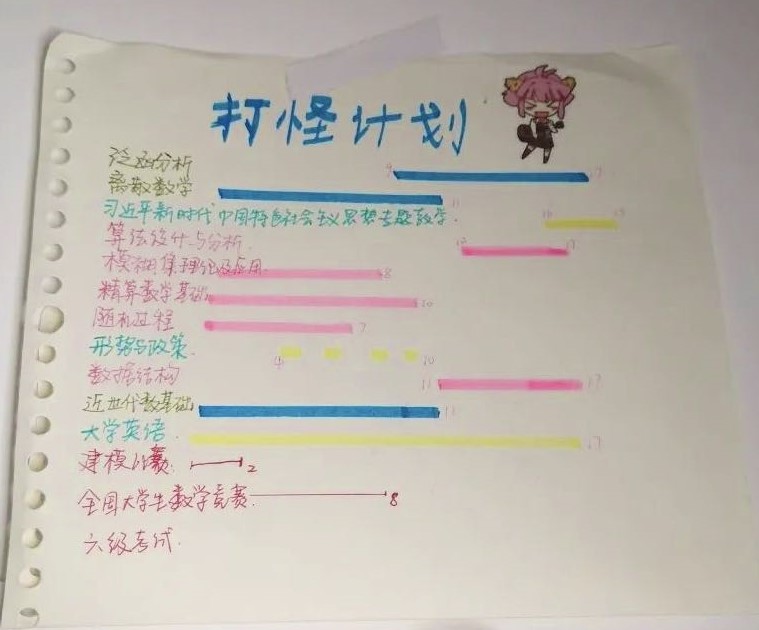 打怪计划
泛函分析 9 17
离散数学 11
习近平新时代中国特色社会主义思想专题教学. 16
算法设计与分析. 12
模糊集理论及应用 8
精算数学基础 10
随机过程 7
形势与政策. 4 10
数据结构 11 17
近世代数基础 11
大学英语. 17
建模比赛: 2
全国大学生数学竞赛. 8
六级考试.